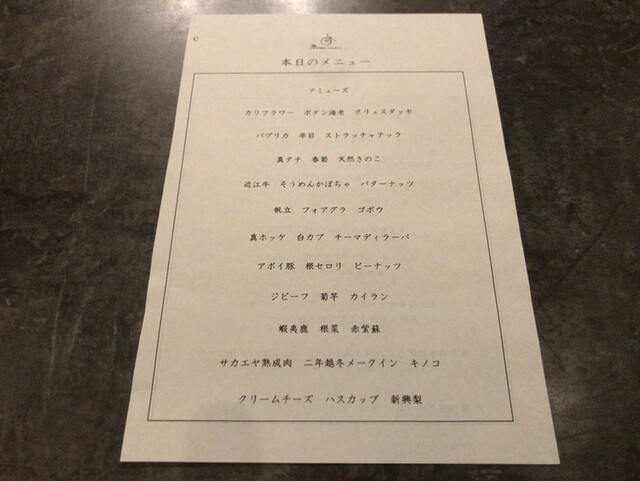 C
本日のメニュー
アミューズ
カリフラワー ボタン海老 クリュスタッセ
パプリカ 平目 ストラッチャテッラ
真ダチ 春菊 天然きのこ
近江牛 そうめんかぼちゃ バターナッツ
帆立 フォアグラ ゴボウ
真ホッケ 白カブ チーマディラーパ
アポイ豚 根セロリ ピーナッツ
ジビーフ 菊芋 カイラン
蝦夷鹿 根菜 赤紫蘇
サカエヤ熟成肉 二年越冬メークイン キノコ
クリームチーズ ハスカップ 新興梨